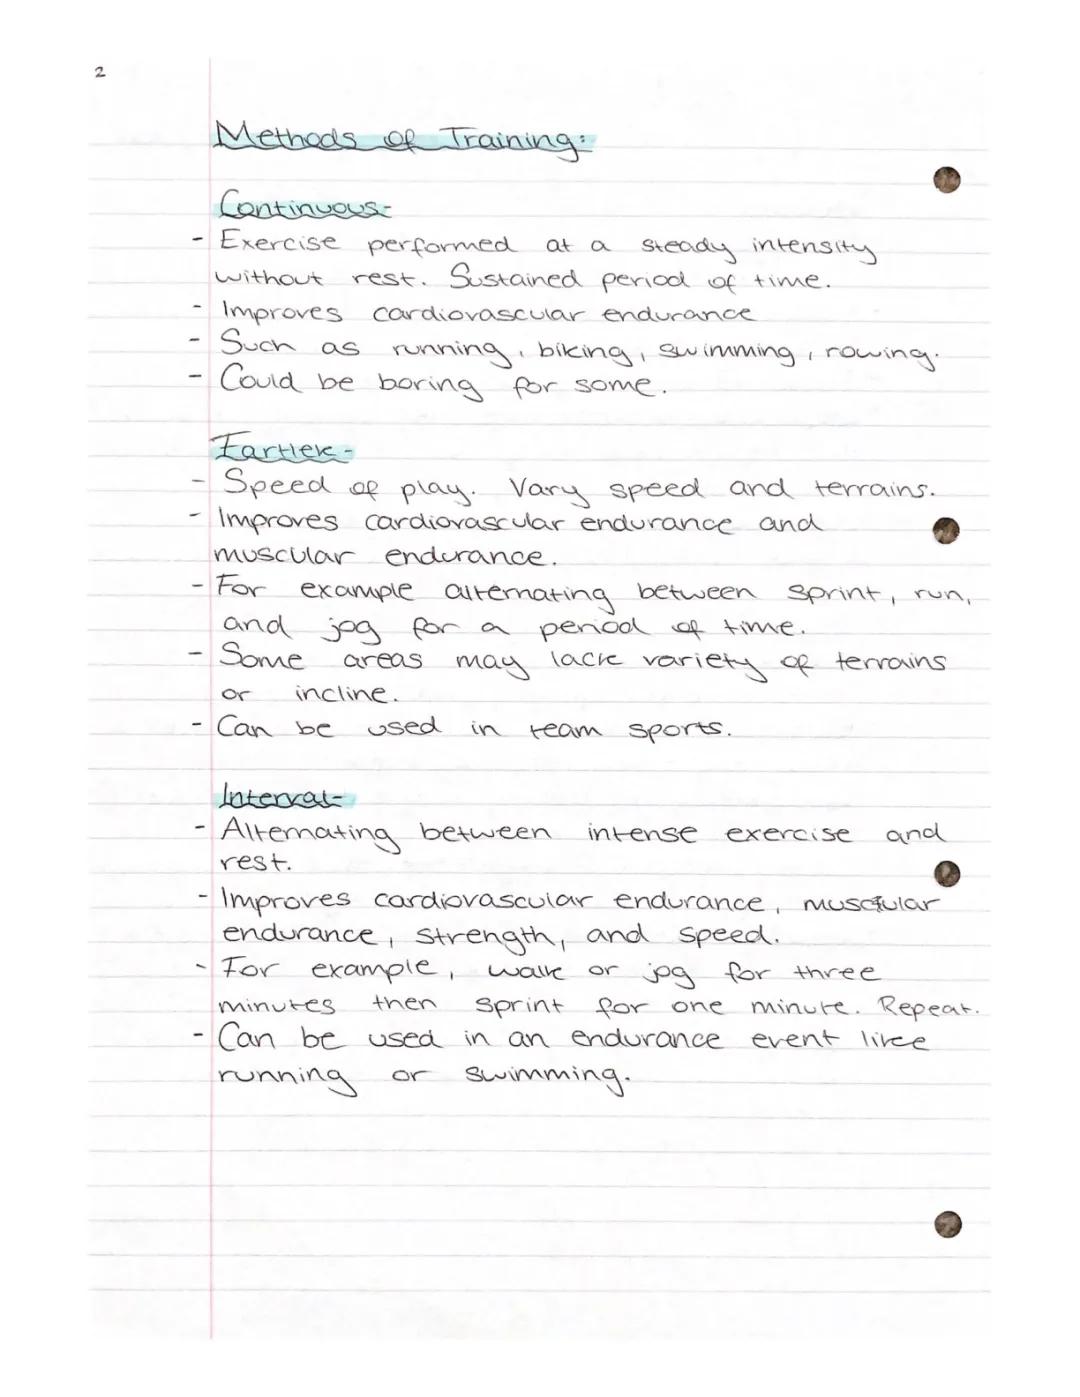 2
Methods of Training:
Continuous-
- Exercise performed at a steady intensity
without rest. Sustained period of time.
- Improves cardiovascular endurance
- Such as running, biking, swimming, rowing.
- Could be boring for some.
Fartlek-
- Speed of play. Vary speed and terrains.
- Improves cardiovascular endurance and
muscular endurance.
- For example alternating between sprint, run,
and jog for a period of time.
- Some areas may lack variety of terrains
or incline.
- Can be used in team sports.
Interval-
- Alternating between intense exercise and
rest.
- Improves cardiovascular endurance, muscular
endurance, strength, and speed.
- For example, walk or jog for three
minutes then sprint for one minute. Repeat.
- Can be used in an endurance event like
running or swimming.